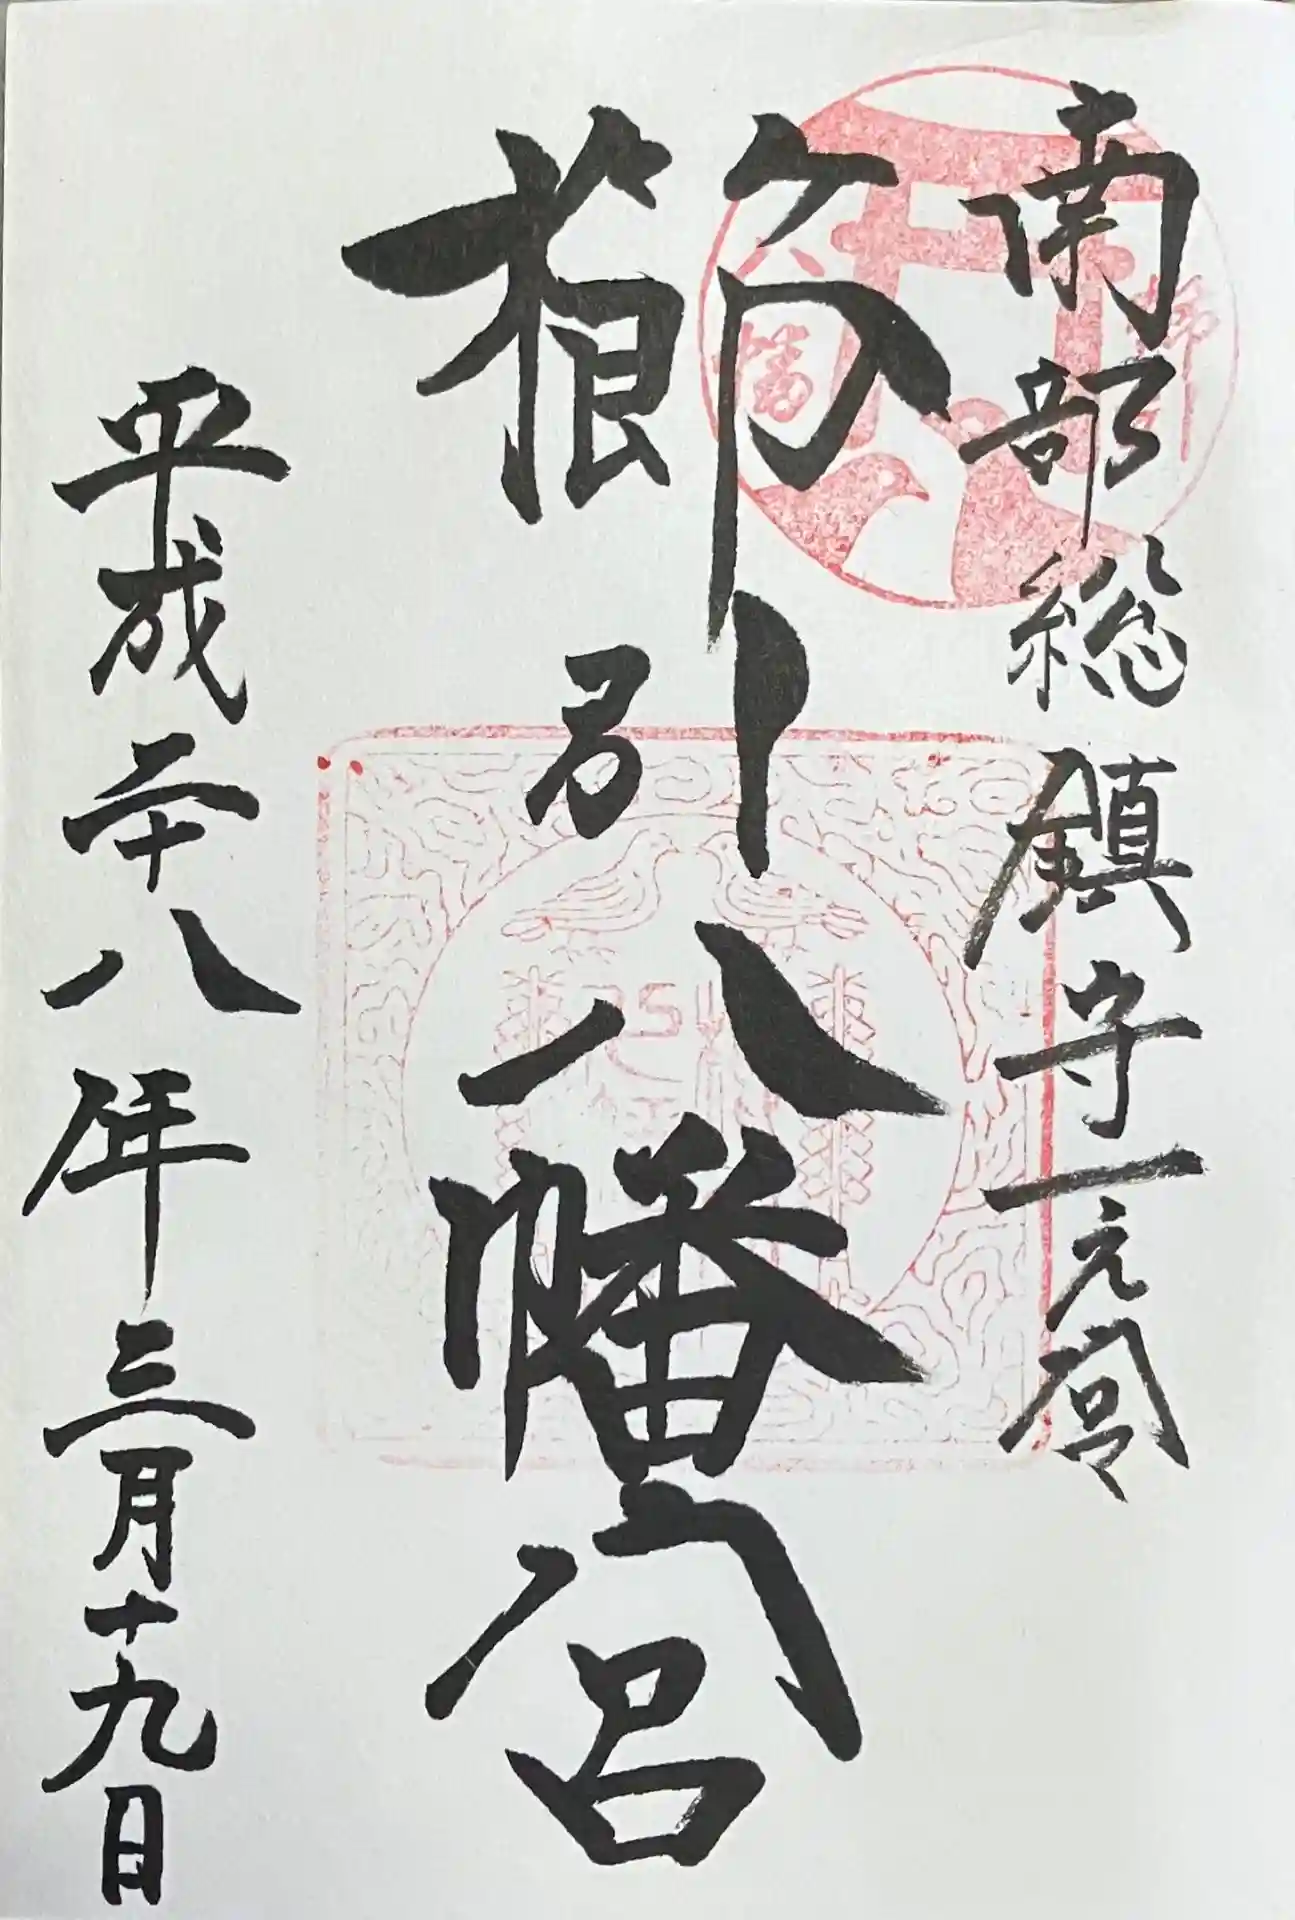 南部総鎮守一之宮
櫛引八幡宮
平成二十八年三月十九日
櫛引
八幡